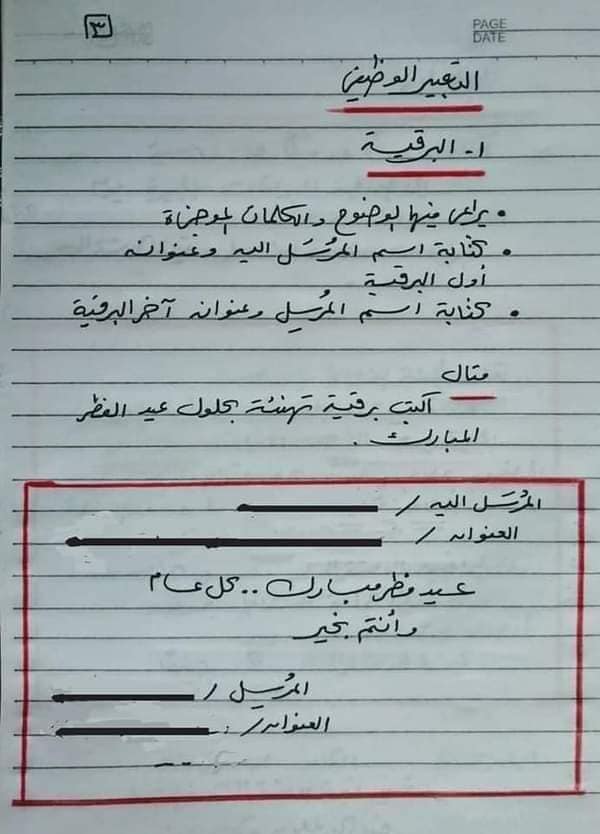 ٣
PAGE
DATE
التعبير الوظيفي
١- البرقية
• يراعى فيها الوضوح والكلمات الموجزة
• كتابة اسم المُرسَل اليه وعنوانه
أول البرقية
• كتابة اسم المُرسِل وعنوانه آخر البرقية
مثال
أكتب برقية تهنئة بحلول عيد الفطر
المبارك .
المُرسَل اليه /
العنوان /
عيد فطر مبارك .. كل عام
وأنتم بخير
المُرسِل /
العنوان /